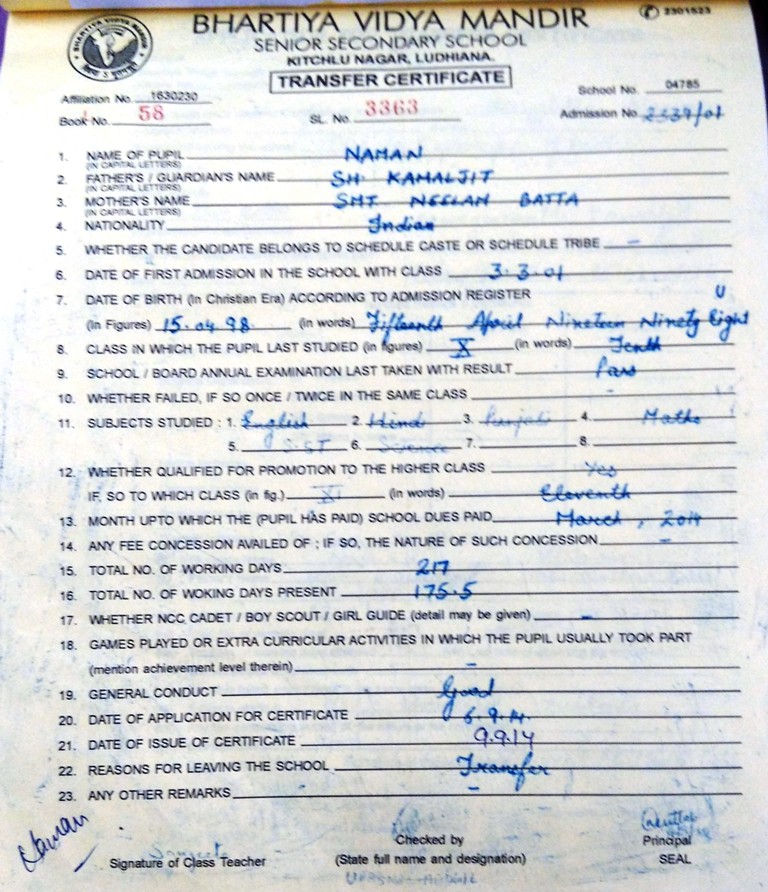 BHARTIYA VIDYA MANDIR
2301523
SENIOR SECONDARY SCHOOL
KITCHLU NAGAR, LUDHIANA.
TRANSFER CERTIFICATE
Affiliation No. 1630230 School No. 04785
Book No. 58 SL. No. 3363 Admission No.
1. NAME OF PUPIL NAMAN
(IN CAPITAL LETTERS)
2. FATHER'S / GUARDIAN'S NAME SH. KAMALJIT
(IN CAPITAL LETTERS)
3. MOTHER'S NAME SMT. NEELAM BATTA
(IN CAPITAL LETTERS)
4. NATIONALITY Indian
5. WHETHER THE CANDIDATE BELONGS TO SCHEDULE CASTE OR SCHEDULE TRIBE –
6. DATE OF FIRST ADMISSION IN THE SCHOOL WITH CLASS 3.3.01
7. DATE OF BIRTH (In Christian Era) ACCORDING TO ADMISSION REGISTER
(In Figures) 15.04.98. (in words) Fifteenth April Nineteen Ninety Eight
8. CLASS IN WHICH THE PUPIL LAST STUDIED (in figures) X (in words) Tenth
9. SCHOOL / BOARD ANNUAL EXAMINATION LAST TAKEN WITH RESULT Pass
10. WHETHER FAILED, IF SO ONCE / TWICE IN THE SAME CLASS –
11. SUBJECTS STUDIED : 1. English 2. Hindi 3. Punjabi 4. Maths
5. S.ST 6. Science 7. 8.
12. WHETHER QUALIFIED FOR PROMOTION TO THE HIGHER CLASS Yes
IF, SO TO WHICH CLASS (in fig.) XI (in words) Eleventh
13. MONTH UPTO WHICH THE (PUPIL HAS PAID) SCHOOL DUES PAID March, 2014
14. ANY FEE CONCESSION AVAILED OF ; IF SO, THE NATURE OF SUCH CONCESSION –
15. TOTAL NO. OF WORKING DAYS 217
16. TOTAL NO. OF WOKING DAYS PRESENT 175.5
17. WHETHER NCC, CADET / BOY SCOUT / GIRL GUIDE (detail may be given) –
18. GAMES PLAYED OR EXTRA CURRICULAR ACTIVITIES IN WHICH THE PUPIL USUALLY TOOK PART
(mention achievement level therein) –
19. GENERAL CONDUCT Good
20. DATE OF APPLICATION FOR CERTIFICATE 6.9.14.
21. DATE OF ISSUE OF CERTIFICATE 9.9.14
22. REASONS FOR LEAVING THE SCHOOL Transfer
23. ANY OTHER REMARKS –
Naman
Checked by Principal
Signature of Class Teacher (State full name and designation) SEAL